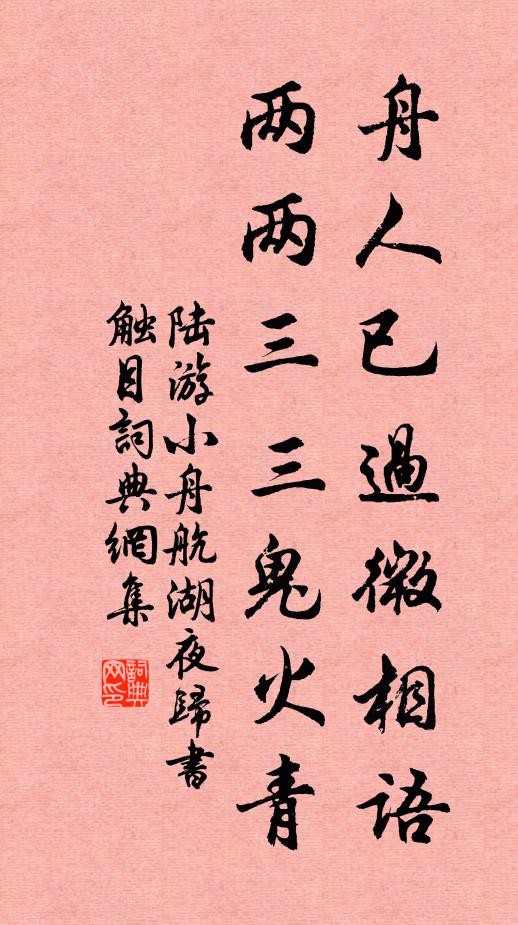 舟人已過微相語
两两三三鬼火青
陆游小舟航湖夜歸書
触目詞典網集
詞典網印